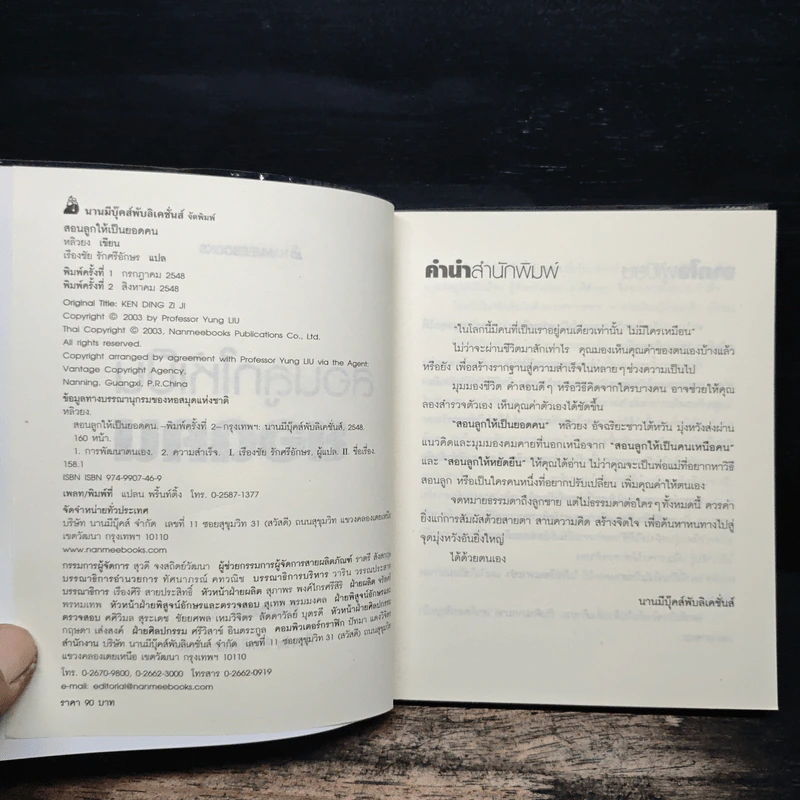 นานมีบุ๊คส์พับลิเคชั่นส์ จัดพิมพ์
สอนลูกให้เป็นยอดคน
หลิวยง เขียน
เรืองชัย รักศรีอักษร แปล
พิมพ์ครั้งที่ 1 กรกฎาคม 2548
พิมพ์ครั้งที่ 2 สิงหาคม 2548
Original Title: KEN DING ZI JI
Copyright © 2003 by Professor Yung LIU
Thai Copyright © 2003, Nanmeebooks Publications Co., Ltd.
All rights reserved.
Copyright arranged by agreement with Professor Yung LIU via the Agent:
Vantage Copyright Agency,
Nanning, Guangxi, P.R.China
ข้อมูลทางบรรณานุกรมของหอสมุดแห่งชาติ
หลิวยง.
สอนลูกให้เป็นยอดคน.--พิมพ์ครั้งที่ 2--กรุงเทพฯ: นานมีบุ๊คส์พับลิเคชั่นส์, 2548.
160 หน้า.
1. การพัฒนาตนเอง. 2. ความสำเร็จ. I. เรืองชัย รักศรีอักษร, ผู้แปล. II. ชื่อเรื่อง
158.1
ISBN ISBN 974-9907-46-9
เพลท/พิมพ์ที่ แปลน พริ้นท์ติ้ง โทร. 0-2587-1377
จัดจำหน่ายทั่วประเทศ
บริษัท นานมีบุ๊คส์ จำกัด เลขที่ 11 ซอยสุขุมวิท 31 (สวัสดี) ถนนสุขุมวิท แขวงคลองเตยเหนือ
เขตวัฒนา กรุงเทพฯ 10110
www.nanmeebooks.com
กรรมการผู้จัดการ สุวดี จงสถิตย์วัฒนา ผู้ช่วยกรรมการผู้จัดการสายผลิตภัณฑ์ ราตรี
บรรณาธิการอำนวยการ ทัศนาภรณ์ คทวณิช บรรณาธิการบริหาร วาริน
บรรณาธิการ เรืองศิริ สายประสิทธิ์ หัวหน้าฝ่ายผลิต สุภาพร พงศ์ไกรศรีสิริ ฝ่ายผลิต
พรหมเทพ หัวหน้าฝ่ายพิสูจน์อักษรและตรวจสอบ สุเทพ พรมมงคล ฝ่ายพิสูจน์อักษรและ
ตรวจสอบ คศิวิมล สุระเดช ชัยยศพล เหมวิจิตร ลัดดาวัลย์ บุตรดี หัวหน้าฝ่ายศิลปกรรม
กฤษดา เส่งสงค์ ฝ่ายศิลปกรรม ศรีวิสาข์ อินตระกูล คอมพิวเตอร์กราฟิก ปัทมา
สำนักงาน บริษัท นานมีบุ๊คส์ จำกัด เลขที่ 11 ซอยสุขุมวิท 31 (สวัสดี) ถนนสุขุมวิท
แขวงคลองเตยเหนือ เขตวัฒนา กรุงเทพฯ 10110
โทร. 0-2670-9800, 0-2662-3000 โทรสาร 0-2662-0919
e-mail: editorial@nanmeebooks.com
ราคา 90 บาท
คำนำสำนักพิมพ์
"ในโลกนี้มีคนที่เป็นเราอยู่คนเดียวเท่านั้น ไม่มีใครเหมือน"
ไม่ว่าจะผ่านชีวิตมาสักเท่าไร คุณมองเห็นคุณค่าของตนเองบ้างแล้ว
หรือยัง เพื่อสร้างรากฐานสู่ความสำเร็จในหลายๆช่วงความเป็นไป
มุมมองชีวิต คำสอนดีๆ หรือวิธีคิดจากใครบางคน อาจช่วยให้คุณ
ลองสำรวจตัวเอง เห็นคุณค่าตัวเองได้ชัดขึ้น
"สอนลูกให้เป็นยอดคน" หลิวยง อัจฉริยะชาวไต้หวัน มุ่งหวังส่งผ่าน
แนวคิดและมุมมองคมคายที่นอกเหนือจาก "สอนลูกให้เป็นคนเหนือคน"
และ "สอนลูกให้หยัดยืน" ให้คุณได้อ่าน ไม่ว่าคุณจะเป็นพ่อแม่ที่อยากหาวิธี
สอนลูก หรือเป็นใครคนหนึ่งที่อยากปรับเปลี่ยน เพิ่มคุณค่าให้ตนเอง
จดหมายธรรมดาถึงลูกชาย แต่ไม่ธรรมดาต่อใครๆทั้งหมดนี้ ควรค่า
ยิ่งแก่การสัมผัสด้วยสายตา สานความคิด สร้างจิตใจ เพื่อค้นหาหนทางไปสู่
จุดมุ่งหวังอันยิ่งใหญ่
ได้ด้วยตนเอง
นานมีบุ๊คส์พับลิเคชั่นส์